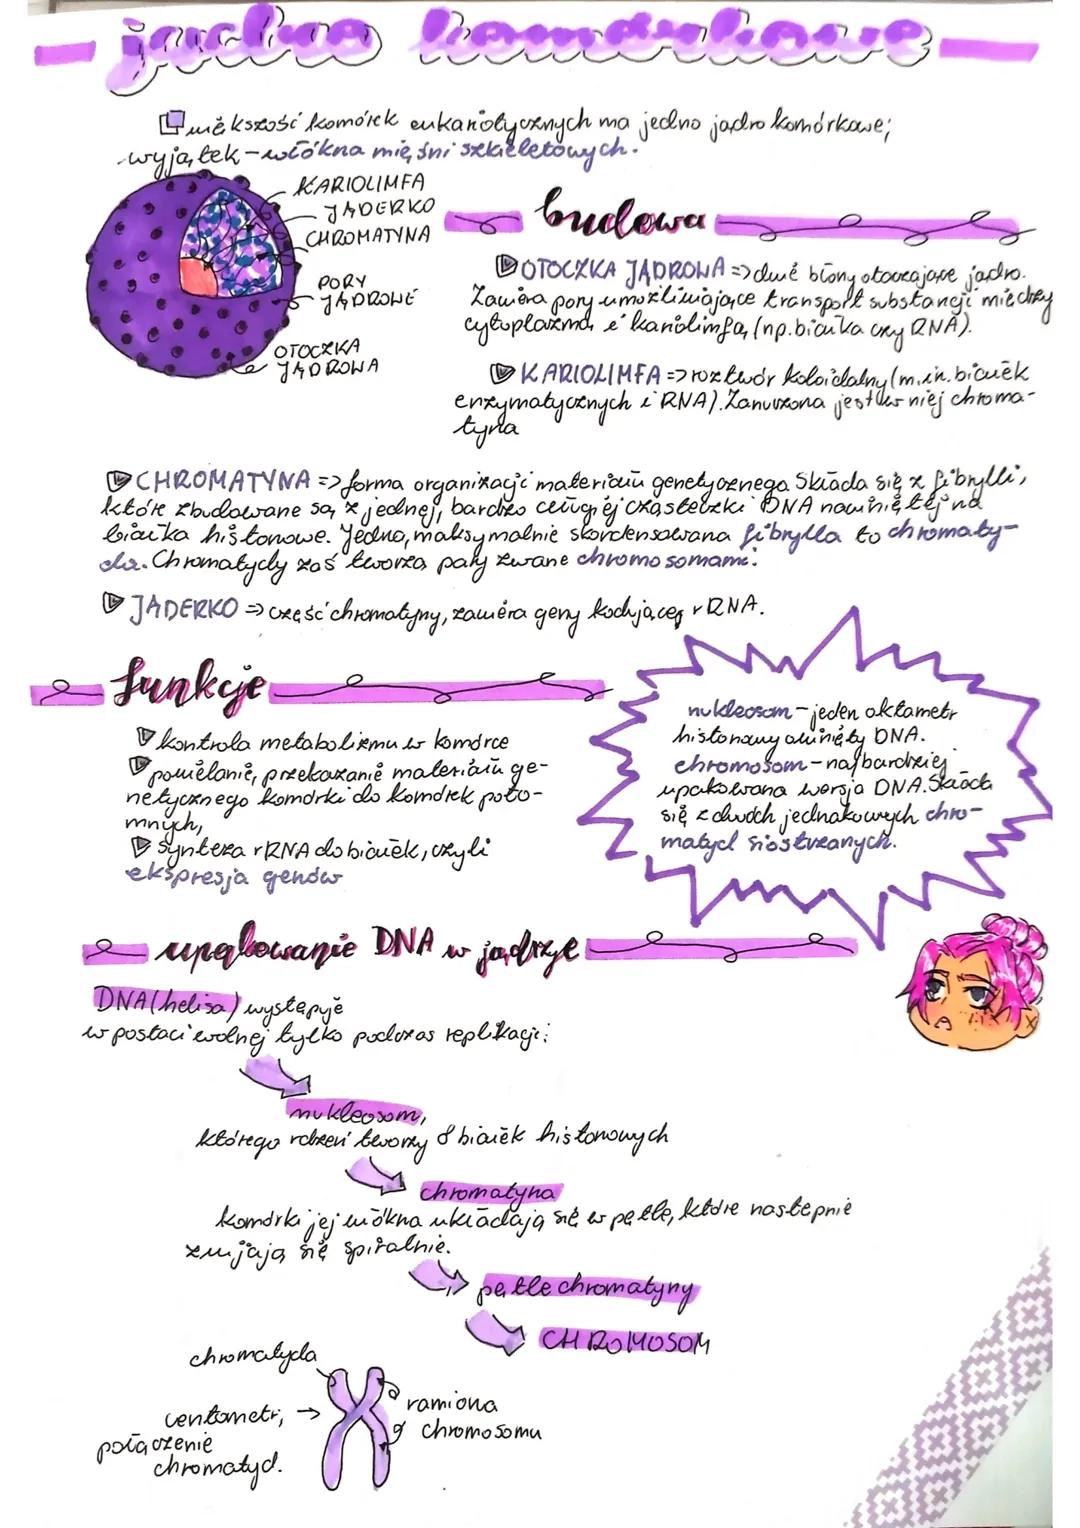 jądro komórkowe
większość komórek eukariotycznych ma jedno jądro komórkowe;
wyjątek - włókna mięśni szkieletowych.
KARIOLIMFA
JĄDERKO
CHROMATYNA
PORY
JĄDROWE
OTOCZKA
JĄDROWA
budowa
OTOCZKA JĄDROWA => dwie błony otaczające jądro.
Zawiera pory umożliwiające transport substancji między
cytoplazmą i kariolimfą (np. białka czy RNA).
KARIOLIMFA => roztwór koloidalny (m.in. białek
enzymatycznych i RNA). Zanurzona jest w niej chroma-
tyna
CHROMATYNA => forma organizacji materiału genetycznego. Składa się z fibrylli,
które zbudowane są z jednej, bardzo długiej cząsteczki DNA nawiniętej na
białka histonowe. Jedna, maksymalnie skondensowana fibrylla to chromaty-
da. Chromatydy zaś tworzą pary zwane chromosomami.
JĄDERKO => część chromatyny, zawiera geny kodujące rRNA.
funkcje
kontrola metabolizmu w komórce
powielanie, przekazanie materiału ge-
netycznego komórki do komórek poto-
mnych,
synteza rRNA do białek, czyli
ekspresja genów
nukleosom - jeden oktametr
histonowy owinięty DNA.
chromosom - najbardziej
upakowana wersja DNA. Składa
się z dwóch jednakowych chro-
matyd siostrzanych.
upakowanie DNA w jądrze
DNA (helisa) występuje
w postaci wolnej tylko podczas replikacji:
nukleosom,
którego rdzeń tworzy 8 białek histonowych
chromatyna
komórki jej włókna układają się w pętle, które następnie
zwijają się spiralnie.
pętle chromatyny
CHROMOSOM
chromatyda
centometr,
połączenie
chromatyd.
ramiona
chromosomu